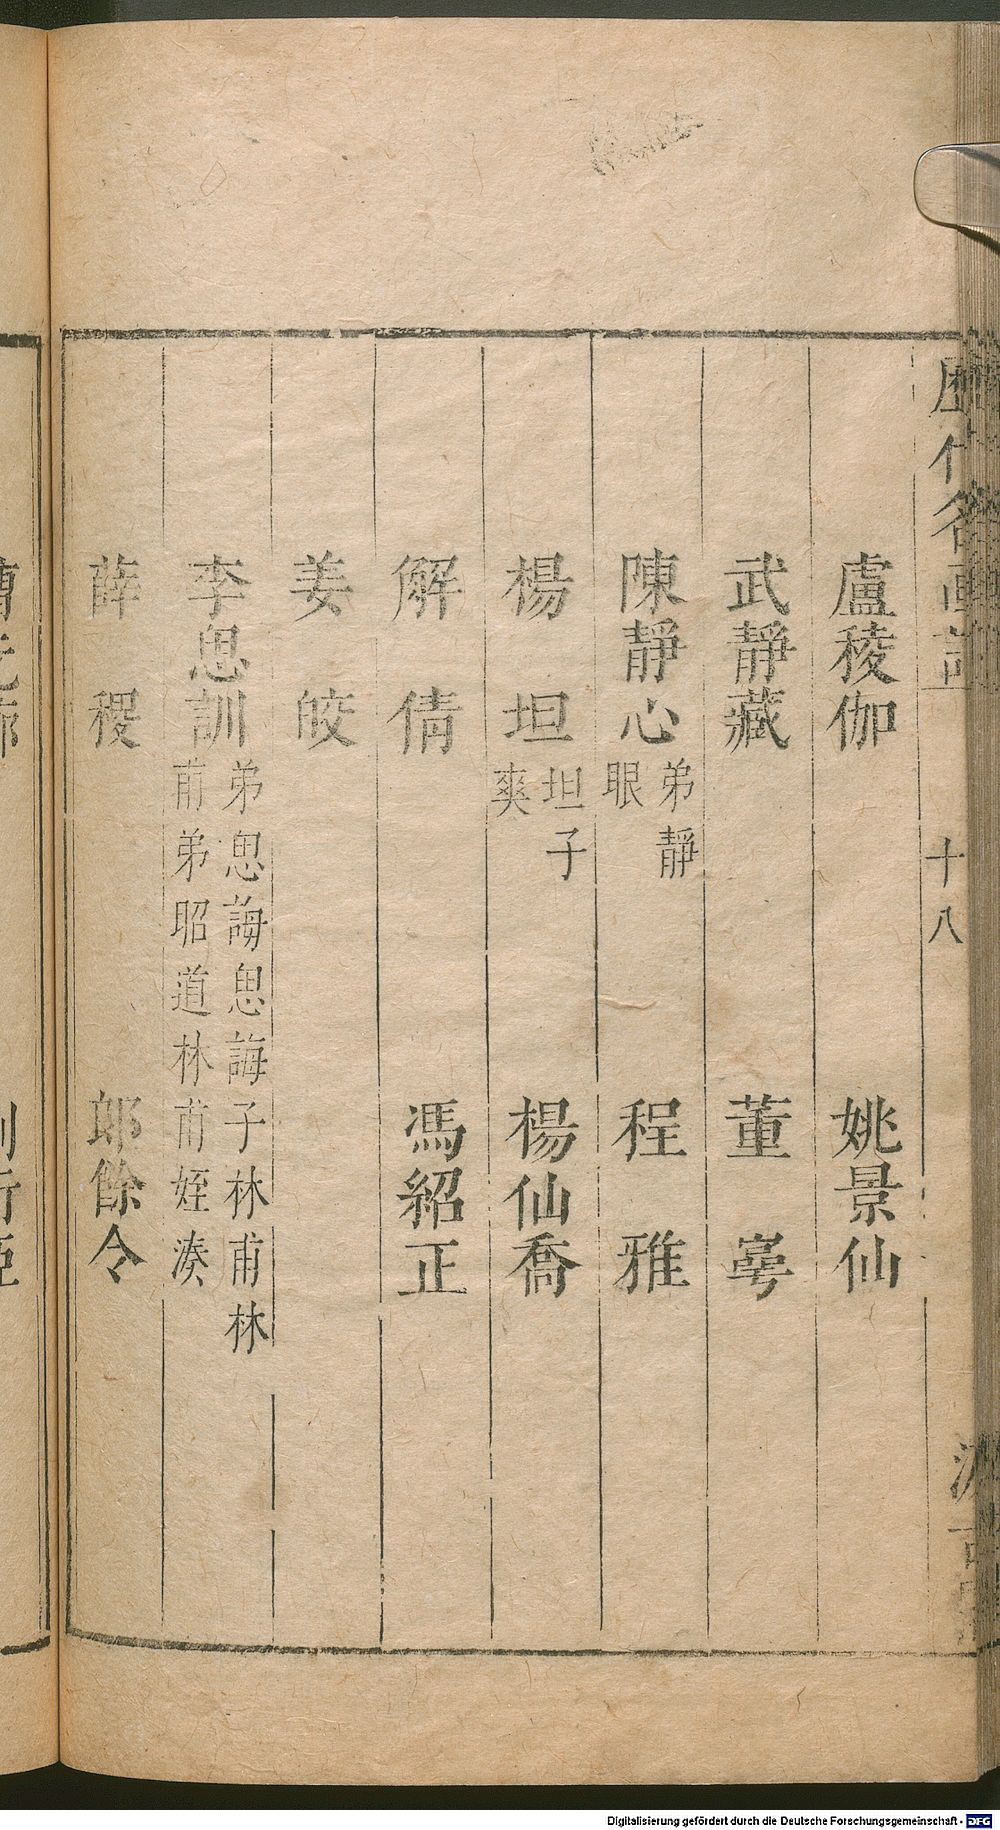 歷代名畫記 十八
盧稜伽 姚景仙
武靜藏 董萼
陳靜心 弟靜眼 程雅
楊坦 坦子爽 楊仙喬
解倩 馮紹正
姜皎
李思訓 弟思誨思誨子林甫林甫弟昭道林甫姪湊
薛稷 郎餘令
Digitalisierung gefördert durch die Deutsche Forschungsgemeinschaft - DFG